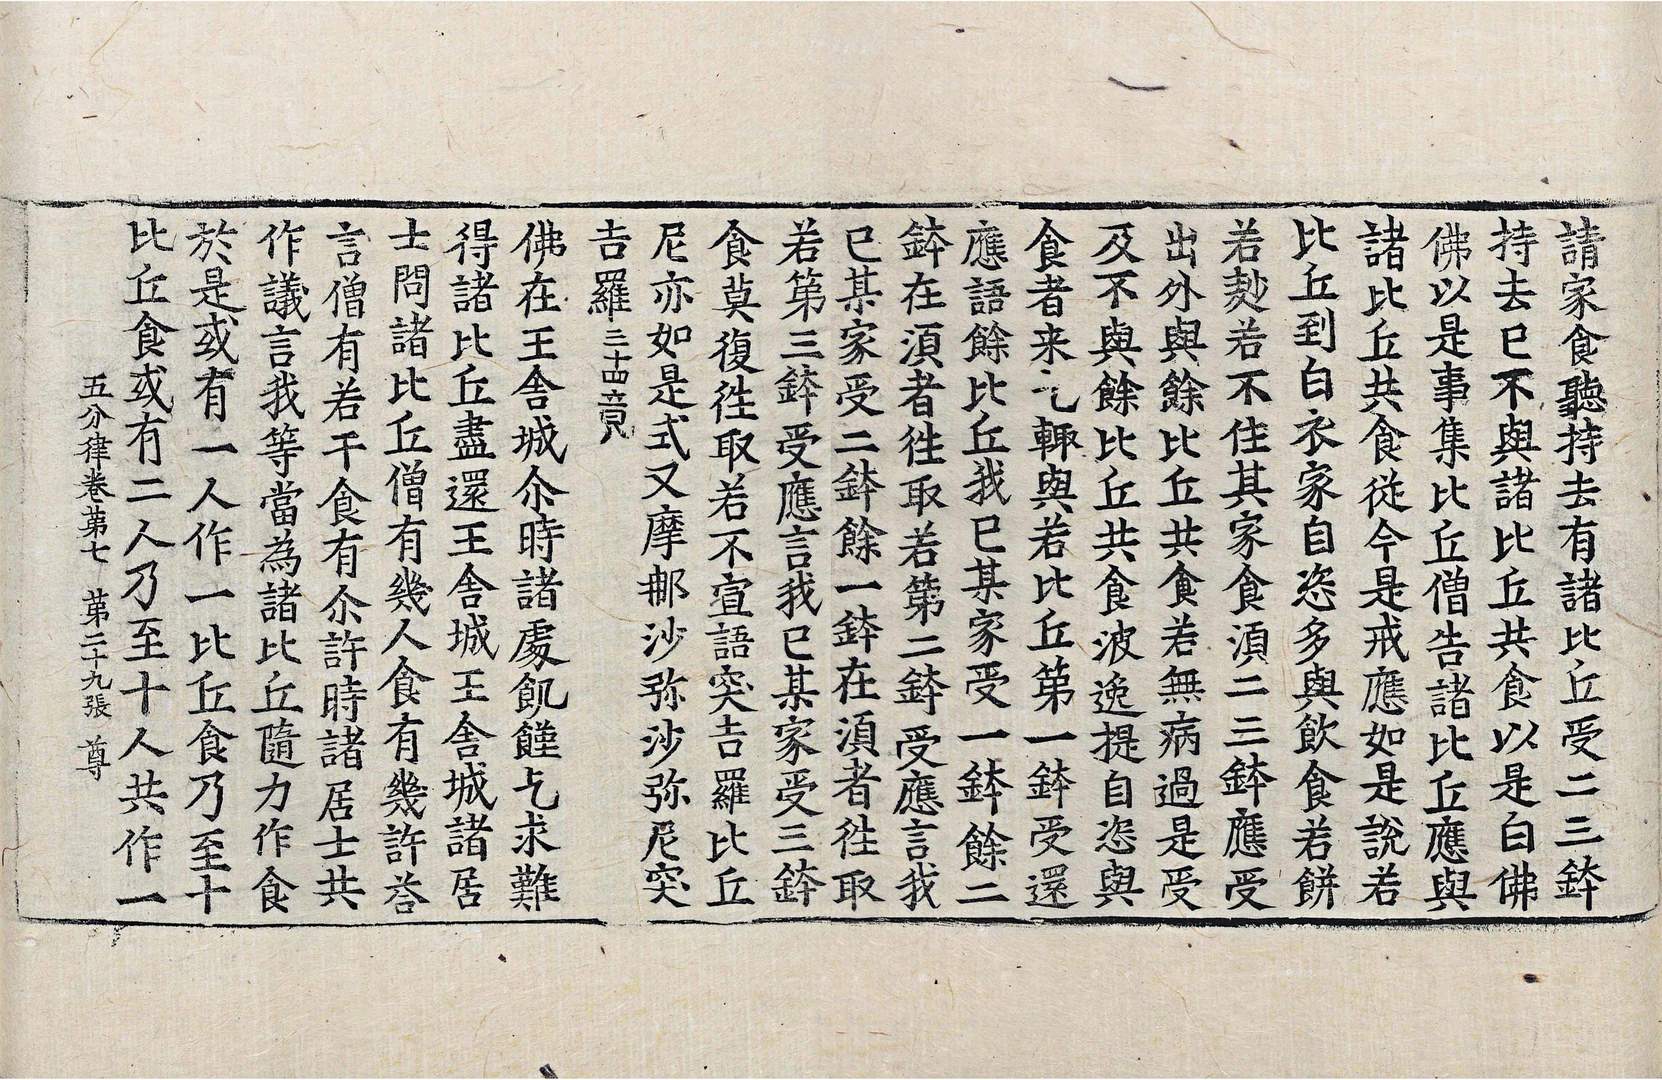 請家食聽持去有諸比丘受二三鉢
持去已不與諸比丘共食以是白佛
佛以是事集比丘僧告諸比丘應與
諸比丘共食從今是戒應如是說若
比丘到白衣家自恣多與飲食若餅
若麨若不住其家食湏二三鉢應受
出外與餘比丘共食若無病過是受
及不與餘比丘共食波逸提自恣與
食者来乞輙與若比丘第一鉢受還
應語餘比丘我已某家受一鉢餘二
鉢在湏者徃取若第二鉢受應言我
已某家受二鉢餘一鉢在湏者徃取
若第三鉢受應言我已某家受三鉢
食莫復徃取若不宣語突吉羅比丘
尼亦如是式叉摩那沙弥沙弥尼突
吉羅三十四竟
佛在王舍城尒時諸處飢饉乞求難
得諸比丘盡還王舍城王舍城諸居
士問諸比丘僧有幾人食有幾許荅
言僧有若干食有尒許時諸居士共
作議言我等當為諸比丘隨力作食
於是或有一人作一比丘食乃至十
比丘食或有二人乃至十人共作一
五分律卷第七 第二十九張 尊